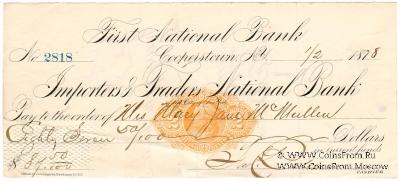 First National Bank
No. 2818 Cooperstown, N.Y. 1/2 1878
Importers & Traders National Bank
Pay to the order of Mary Jane McMullen
Eighty Seven 50/100 Dollars
in current funds
$ 87 50/100
CASHIER
© www.CoinsFrom.Ru
© www.CoinsFrom.Ru